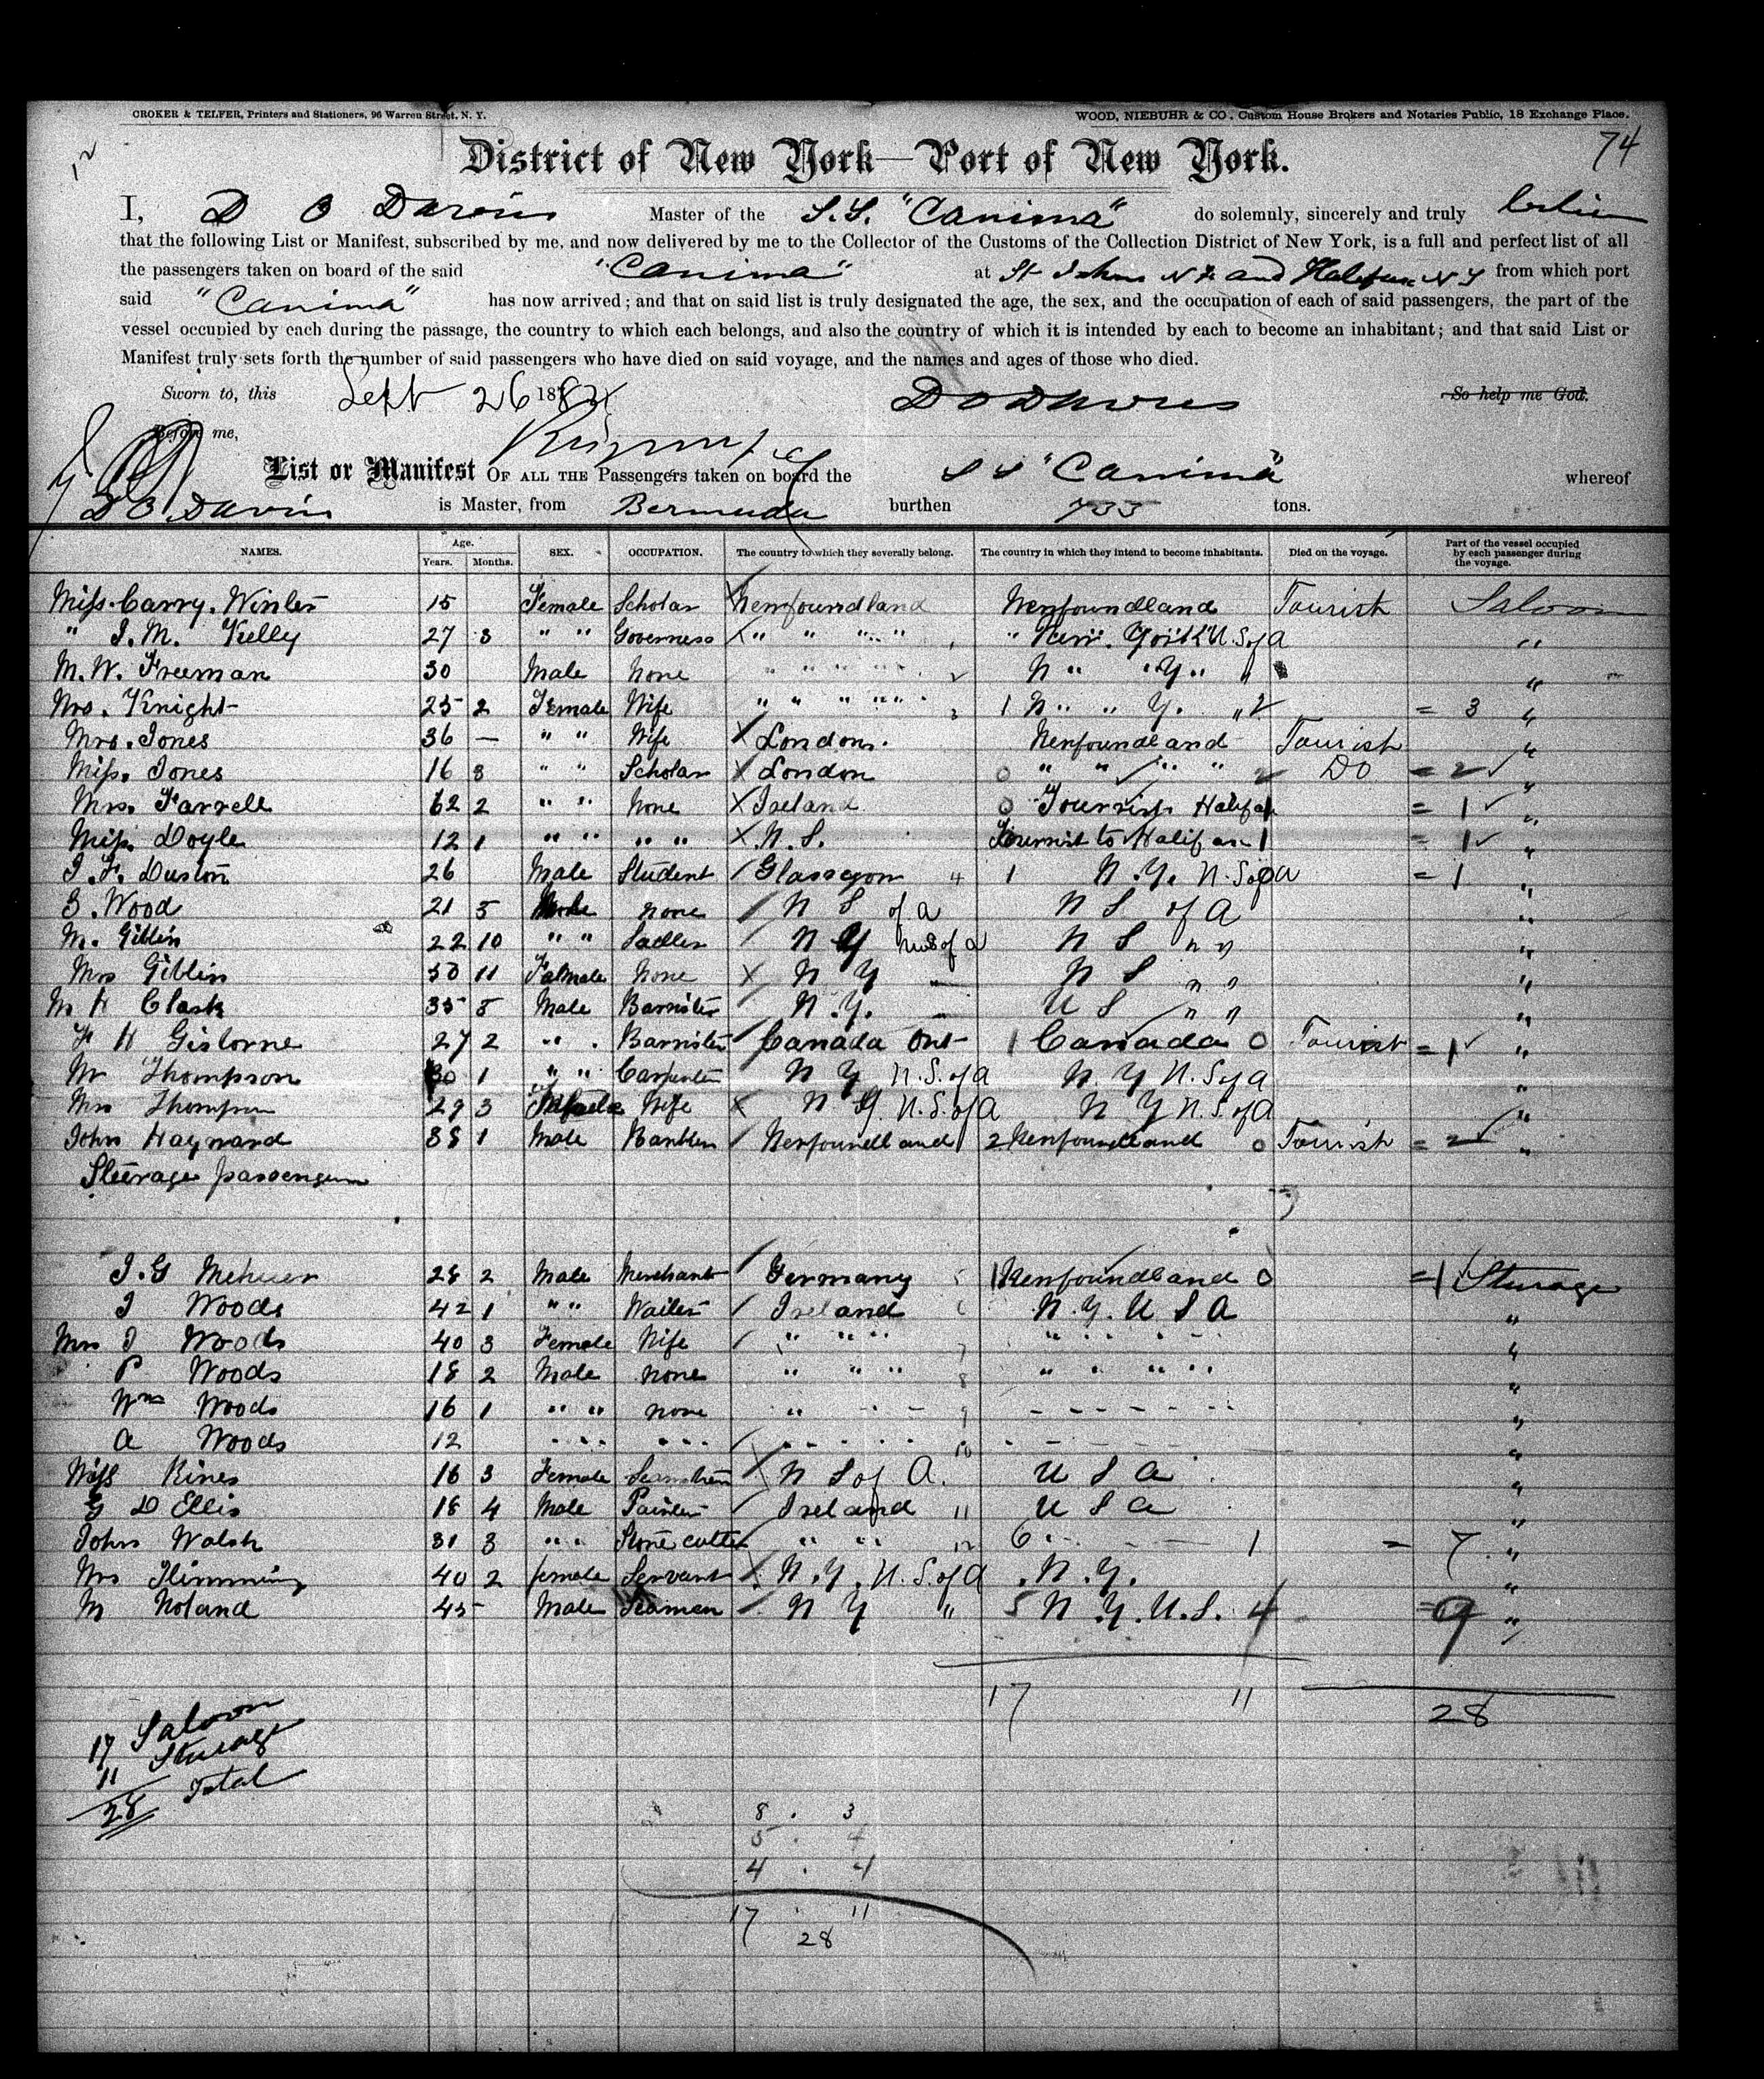 CROKER & TELFER, Printers and Stationers, 96 Warren Street, N. Y. WOOD, NIEBUHR & CO., Custom House Brokers and Notaries Public, 18 Exchange Place.
74
District of New York—Port of New York.
I, D O Davies Master of the S.S. "Canima" do solemnly, sincerely and truly
that the following List or Manifest, subscribed by me, and now delivered by me to the Collector of the Customs of the Collection District of New York, is a full and perfect list of all
the passengers taken on board of the said "Canima" at St Johns N F and Halifax N S from which port
said "Canima" has now arrived; and that on said list is truly designated the age, the sex, and the occupation of each of said passengers, the part of the
vessel occupied by each during the passage, the country to which each belongs, and also the country of which it is intended by each to become an inhabitant; and that said List or
Manifest truly sets forth the number of said passengers who have died on said voyage, and the names and ages of those who died.
Sworn to, this Sept 26 1882 D O Davies So help me God.
Before me,
List or Manifest OF ALL THE Passengers taken on board the S S "Canima" whereof
D O Davies is Master, from Bermuda burthen 735 tons.
NAMES. Age. Years. Months. SEX. OCCUPATION. The country to which they severally belong. The country in which they intend to become inhabitants. Died on the voyage. Part of the vessel occupied by each passenger during the voyage.
Miss Carry Winter 15 Female Scholar Newfoundland Newfoundland Tourist Saloon
" J. M. Kelly 27 8 " " Governess " " " " New York U.S of A "
M. W. Freeman 30 Male None " " " " N " " Y " "
Mrs. Knight 25 2 Female Wife " " " " 3 1 N " " Y. " 2 = 3 "
Mrs. Jones 36 — " " Wife London. Newfoundland Tourist "
Miss. Jones 16 8 " " Scholar London 0 " " " " 2 Do = 2 "
Mrs. Farrell 62 2 " " None Ireland 0 Tourist Halifax 1 = 1 "
Miss. Doyle 12 1 " " " " N. S. Tourist to Halifax 1 = 1 "
J. F. Duston 26 Male Student Glassgow 4 1 N. Y. U.S of A = 1 "
S. Wood 21 5 Male none U S of A U S of A "
M. Giblin 22 10 " " Sadler N Y U S of A U S " " "
Mrs Giblin 50 11 Female None N Y U S " " "
M H Clark 35 8 Male Barrister N. Y. U S " " "
F H Gisborne 27 2 " " Barrister Canada Ont 1 Canada 0 Tourist = 1 "
Mr Thompson 30 1 " " Carpenter N Y U.S. of A N Y U.S of A "
Mrs Thompson 29 3 Female Wife N Y U.S. of A N Y U.S. of A "
John Hayward 38 1 Male Newfoundland 2 Newfoundland 0 Tourist = 2 "
Steerage passengers
J. G 28 2 Male Merchant Germany 5 1 Newfoundland 0 = 1 Steerage
J Woods 42 1 " " Waiter Ireland 6 N. Y. U S A "
Mrs J Woods 40 3 Female Wife " " " 7 " " " " "
P Woods 18 2 Male none " " " 8 " " " " "
Wm Woods 16 1 " " none " 9 "
A Woods 12 10 "
Miss Kines 18 3 Female U S of A. U S A "
G D Ellis 18 4 Male Painter Ireland 11 U S A "
John Walsh 31 3 " " Stone cutter " " 12 6 1 = 7 "
Mrs Flimming 40 2 female Servant N. Y. U. S. of A N. Y. "
M Noland 45 Male Seaman N Y " 5 N. Y. U. S. 4 = 9 "
17 11 28
17 Saloon
11 Steerage
28 Total
8 . 3
5 . 4
4 . 4
17 . 11
28